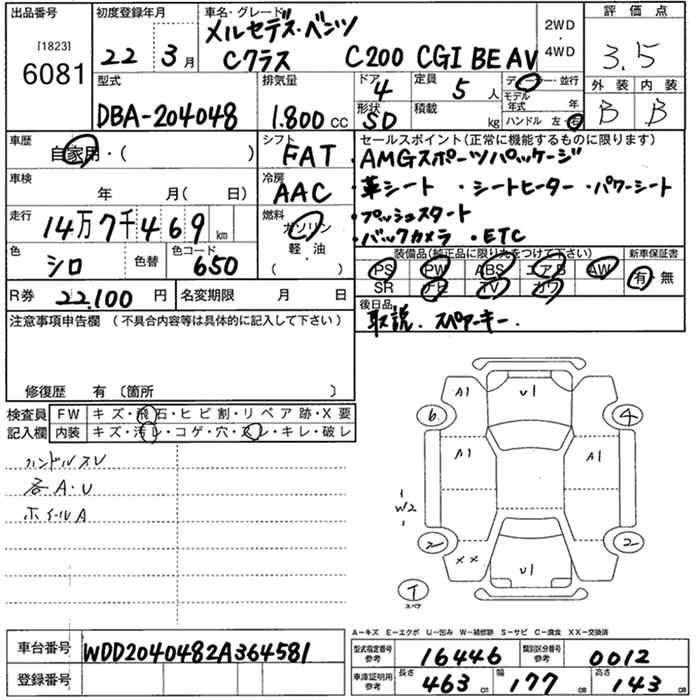 出品番号
[1823]
6081
初度登録年月
22 3月
車名・グレード
メルセデス・ベンツ
Cクラス C200 CGI BE AV
2WD
・
4WD
評価点
3.5
外装 内装
B B
型式
DBA-204048
排気量
1.800 CC
ドア
4
定員
5 人
形状
SD
積載
kg
ディーラー・並行
モデル
年式 年
ハンドル 左・右
車歴
自家用・( )
シフト
FAT
車検
年 月( 日)
冷房
AAC
走行
14万7千469 km
燃料
ガソリン
軽・油
( )
色
シロ
色替
色コード
650
R券 22.100 円
名変期限 月 日
セールスポイント(正常に機能するものに限ります)
・AMGスポーツパッケージ
・革シート ・シートヒーター ・パワーシート
・プッシュスタート
・バックカメラ ・ETC
装備品(純正品に限り丸をつけて下さい)
PS PW ABS エアB AW
SR ナビ TV カワ
新車保証書
有・無
後日品
取説. スペアーキー.
注意事項申告欄 (不具合内容等は具体的に記入して下さい)
修復歴 有〔箇所 〕
検査員
記入欄
FW キズ・飛石・ヒビ割・リペア跡・X要
内装 キズ・汚レ・コゲ・穴・スレ・キレ・破レ
ハンドルスレ
各A・U
ホイールA
A1 U1
6 4
A1 A1
W2
2 2
XX U1
T
スペア
A-キズ E-エクボ U-凹み W-補修跡 S-サビ C-腐食 XX-交換済
車台番号 WDD2040482A364581
登録番号
型式指定番号
参考
16446
類別区分番号
参考
0012
車庫証明用
参考
長さ 463 cm
幅 177 cm
高さ 143 cm